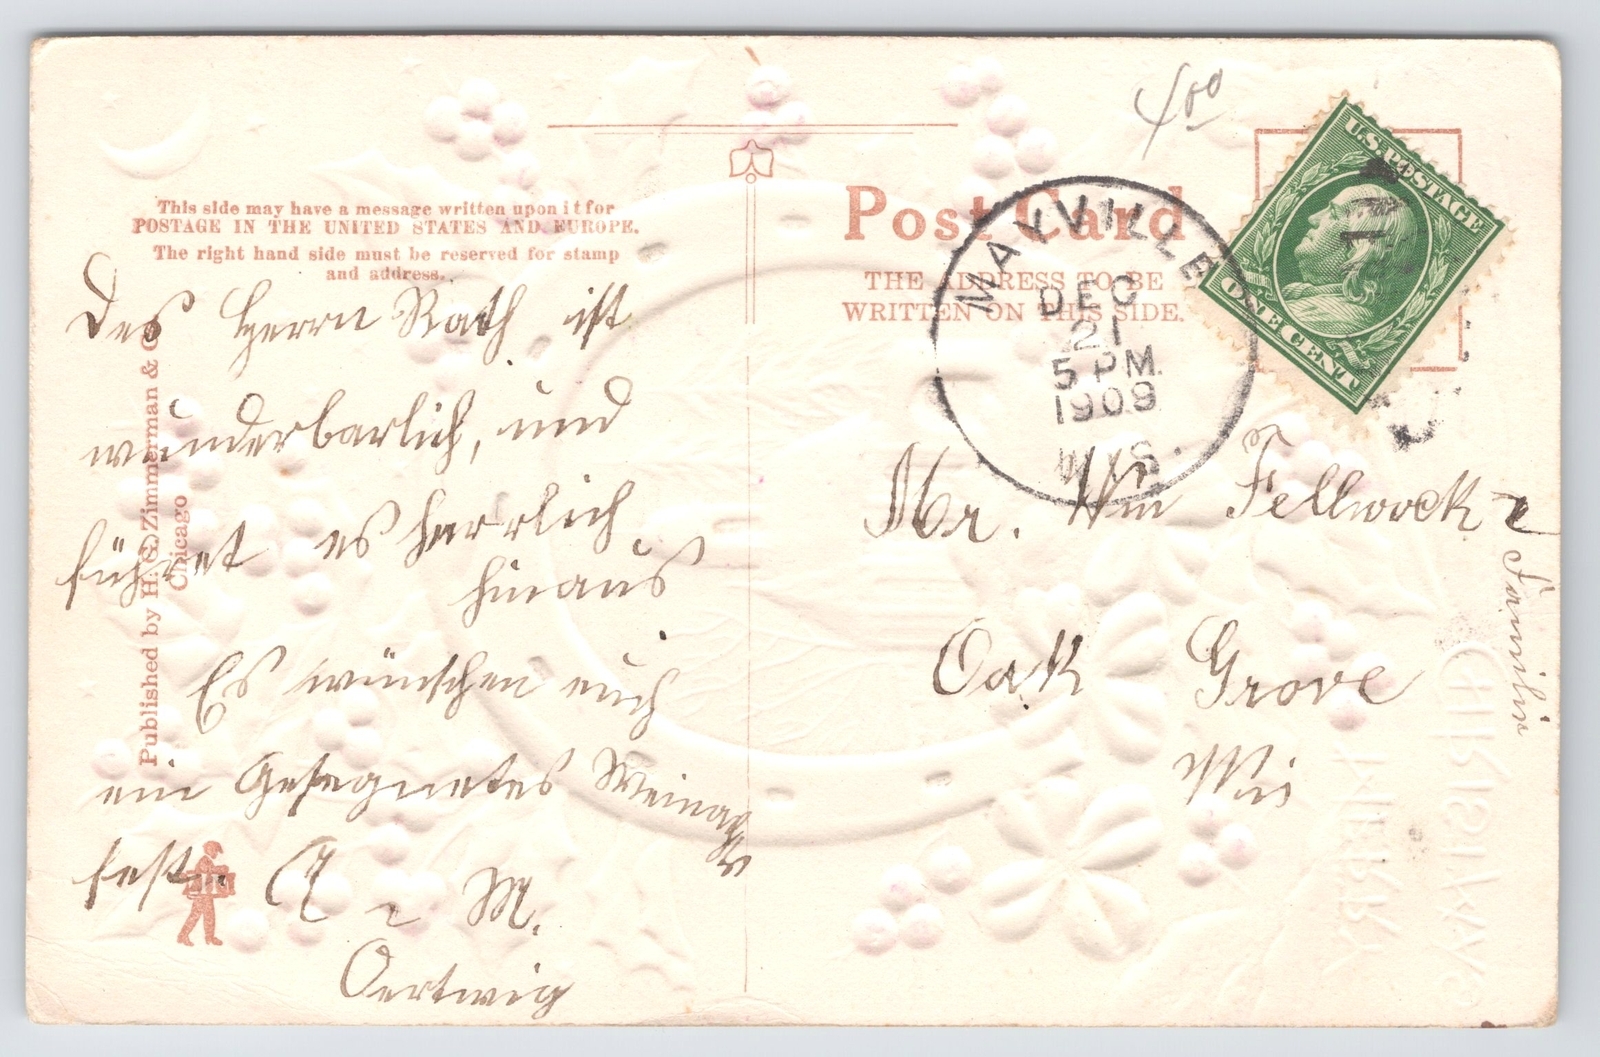 This side may have a message written upon it for
POSTAGE IN THE UNITED STATES AND EUROPE.
The right hand side must be reserved for stamp
and address.
Des Herrn Rath ist
wunderbarlich, und
führet es herrlich
hinaus
Es wünschen euch
ein Gesegnetes Weinachts
fest. M.
Oertwig
Published by H. G. Zimmerman & Co.
Chicago
Post Card
THE ADDRESS TO BE
WRITTEN ON THIS SIDE.
MAYVILLE
DEC
21
5 PM.
1909
WIS.
U.S. POSTAGE
ONE CENT
Mr. Wm Fellwock
Familie
Oak Grove
Wis
MERRY
CHRISTMAS